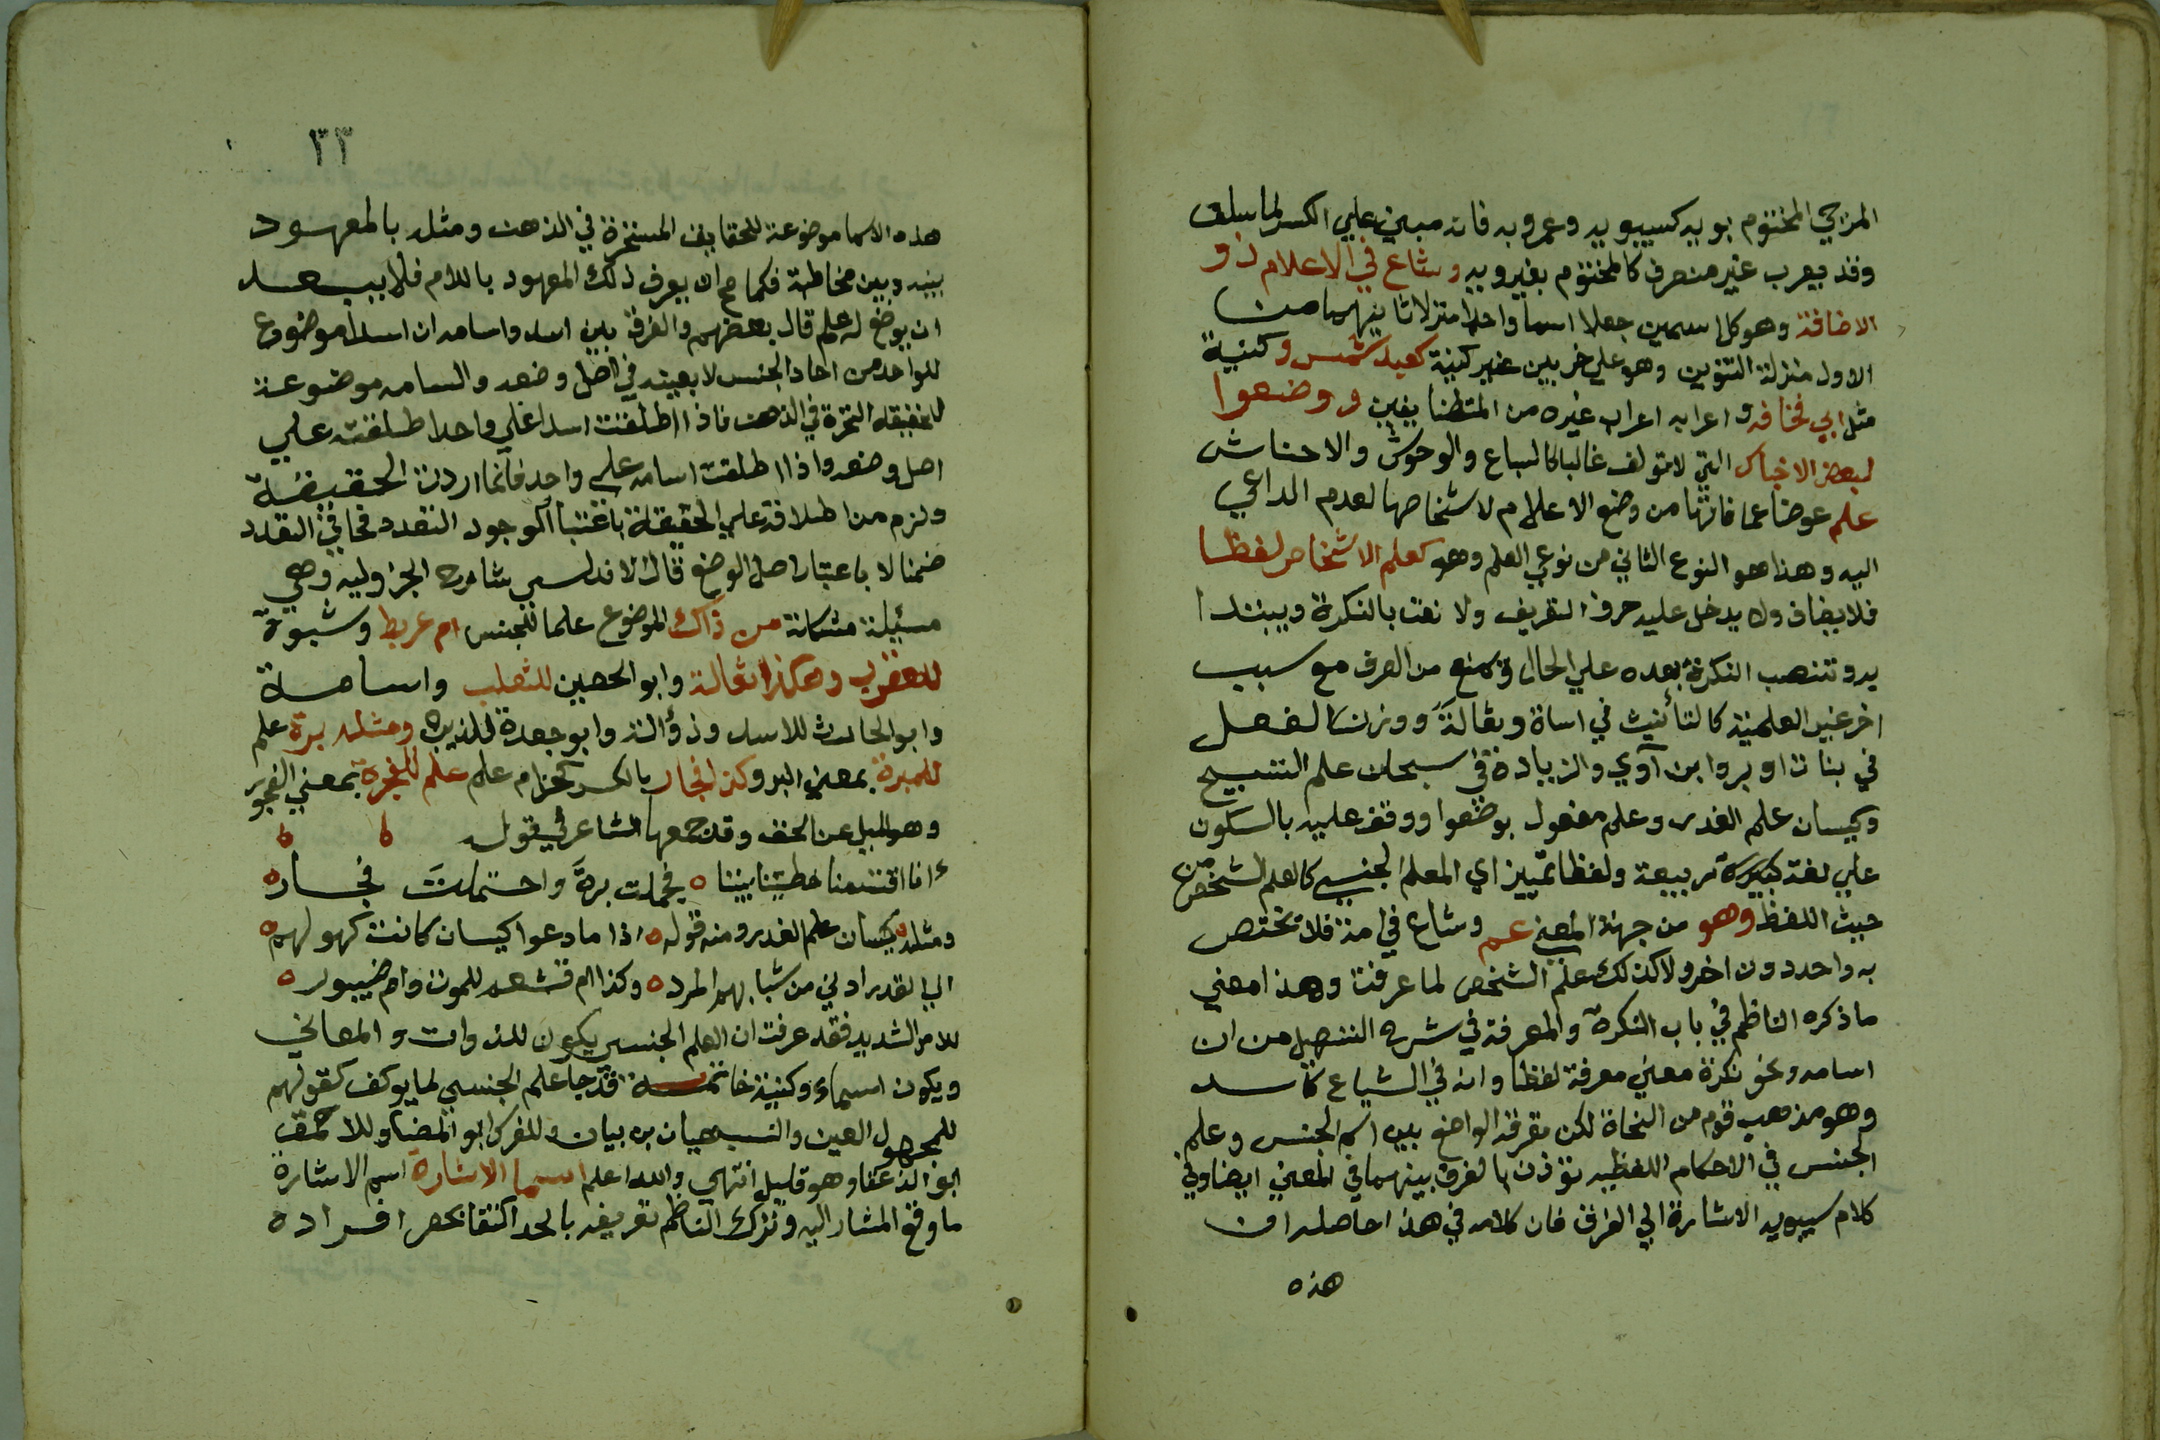 المزجي المختوم بويه كسيبويه وعمرويه فانه مبني علي الكسر لما سلف
وقد يعرب غير منصرف كالمختوم بغير ويه وشاع في الاعلام ذو
الاضافة وهو كل اسمين جعلا اسما واحدا منزلا ثانيهما من
الاول منزلة التنوين وهو علي ضربين غير كنية كعبد شمس وكنية
مثل ابي قحافه واعرابه اعراب غيره من المتضايفين ووضعوا
لبعض الاجناس التي لا تولف غالبا كالسباع والوحوش والاحناش
علم عوضا عما فاتها من وضع الاعلام لاشخاصها لعدم الداعي
اليه وهذا هو النوع الثاني من نوعي العلم وهو كعلم الاشخاص لفظا
فلا يضاف ولا يدخل عليه حرف التعريف ولا نعت بالنكرة ويبتدا
به وتنصب النكرة بعده علي الحال ويمنع من الصرف مع سبب
اخر غير العلمية كالتأنيث في اسامة وثعالة ووزن الفعل
في بنات اوبر وابن آوي والزيادة في سبحان علم التسبيح
وكيسان علم الغدر وعلم مفعول بوضعوا ووقف عليه بالسكون
علي لغة ربيعة ولفظا تمييز اي العلم الجنسي كالعلم الشخصي من
حيث اللفظ وهو من جهة المعني عم وشاع في امته فلا تختص
به واحد دون اخر ولا كذلك علم الشخص لما عرفت وهذا معني
ما ذكره الناظم في باب النكرة والمعرفة في شرح التسهيل من ان
اسامه ونحو نكرة معني معرفة لفظا وانه في الشياع كاسد
وهو مذهب قوم من النحاة لكن تفرقة الواضع بين اسم الجنس وعلم
الجنس في الاحكام اللفظيه توذن بالفرق بينهما في المعني ايضا وفي
كلام سيبويه الاشارة الي الفرق فان كلامه في هذا حاصله ان
هذه
٣٣
هذه الاسما موضوعة للحقايق المستحزة في الذهن ومثله بالمعهود
بينه وبين مخاطبه فكما صح ان يعرف ذلك المعهود باللام فلا يبعد
ان يوضع له علم قال بعضهم والفرق بين اسد واسامه ان اسدا موضوع
للواحد من احاد الجنس لا بعينه في اصل وضعه والسامه موضوعة
للحقيقه التحزة في الذهن فاذا اطلقت اسدا علي واحد اطلقته علي
اصل وضعه واذا اطلقت اسامه علي واحد فانما اردت الحقيقة
ولزم من اطلاقه علي الحقيقة باعتبار الوجود التعدد فجا في التعدد
ضمنا لا باعتبار اصل الوضع قال الاندلسي شارح الجزوليه وهي
مسئيلة مشكلة من ذاك الموضوع علما للجنس ام عريط وشبوة
للعقرب وهكذا ثعالة وابو الحصين للثعلب واسامة
وابو الحارث للاسد وذؤالة وابو جعدة للذيب ومثله برة علم
للمبرة بمعني البر وكذا فجار بالكسر كحزام علم علم للفجرة بمعني الفجور
وهو الميل عن الحق وقد جمعها الشاعر في قوله
انا اقتسمنا خطتينا بيننا فحملت برة واحتملت فجار
ومثله كيسان علم الغدر ومنه قوله اذا ما دعوا كيسان كانت كهولهم
الي الغدر ادني من شبابهم المرد وكذا ام قشعم للموت وام صبور
للامر الشديد فقد عرفت ان العلم الجنسي يكون للذوات والمعاني
ويكون اسماء وكنية خاتمه قد جا علم الجنسي لما يولف كقولهم
للمجهول العين والنسب هيان بن بيان وللفرس ابو المضا وللاحمق
ابو الدغفا وهو قليل انتهي والله اعلم اسما الاشارة اسم الاشارة
ما وضع المشار اليه وترك الناظم تعريفه بالحد اكتفا بحصر افراده